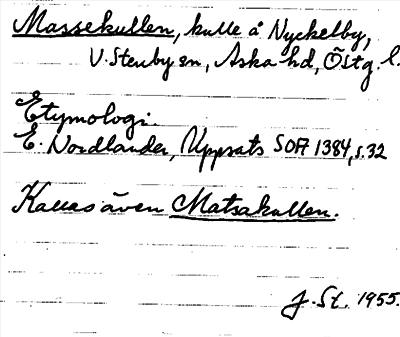 Massekullen, kulle å Nyckelby,
V. Stenby sn, Aska hd, Östg. l.
Etymologi:
E. Nordlander, Uppsats SOA 1384, s. 32
Kallas även Matsakullen.
J. St. 1955.